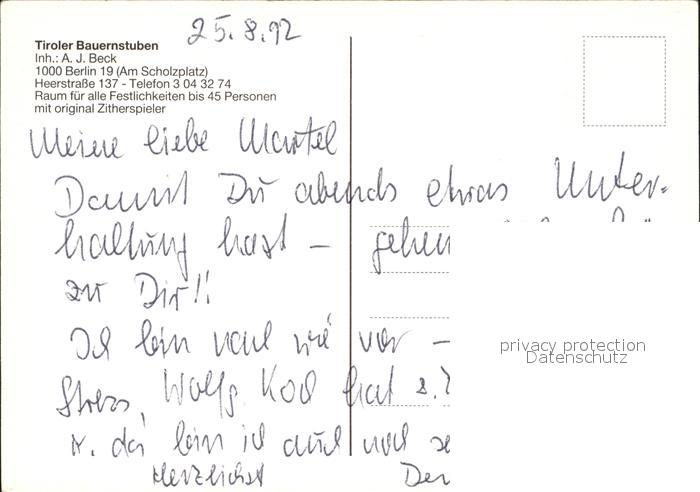 25.8.92
Tiroler Bauernstuben
Inh.: A. J. Beck
1000 Berlin 19 (Am Scholzplatz)
Heerstraße 137 - Telefon 3 04 32 74
Raum für alle Festlichkeiten bis 45 Personen
mit original Zitherspieler
Meine liebe
Damit Du abends etwas Unter-
haltung hast – gehen
zu Dir!!
Ich bin nach wie vor –
Stress, Wolfg. Koch hat
da bin ich auch noch
Herzlichst Der
privacy protection
Datenschutz